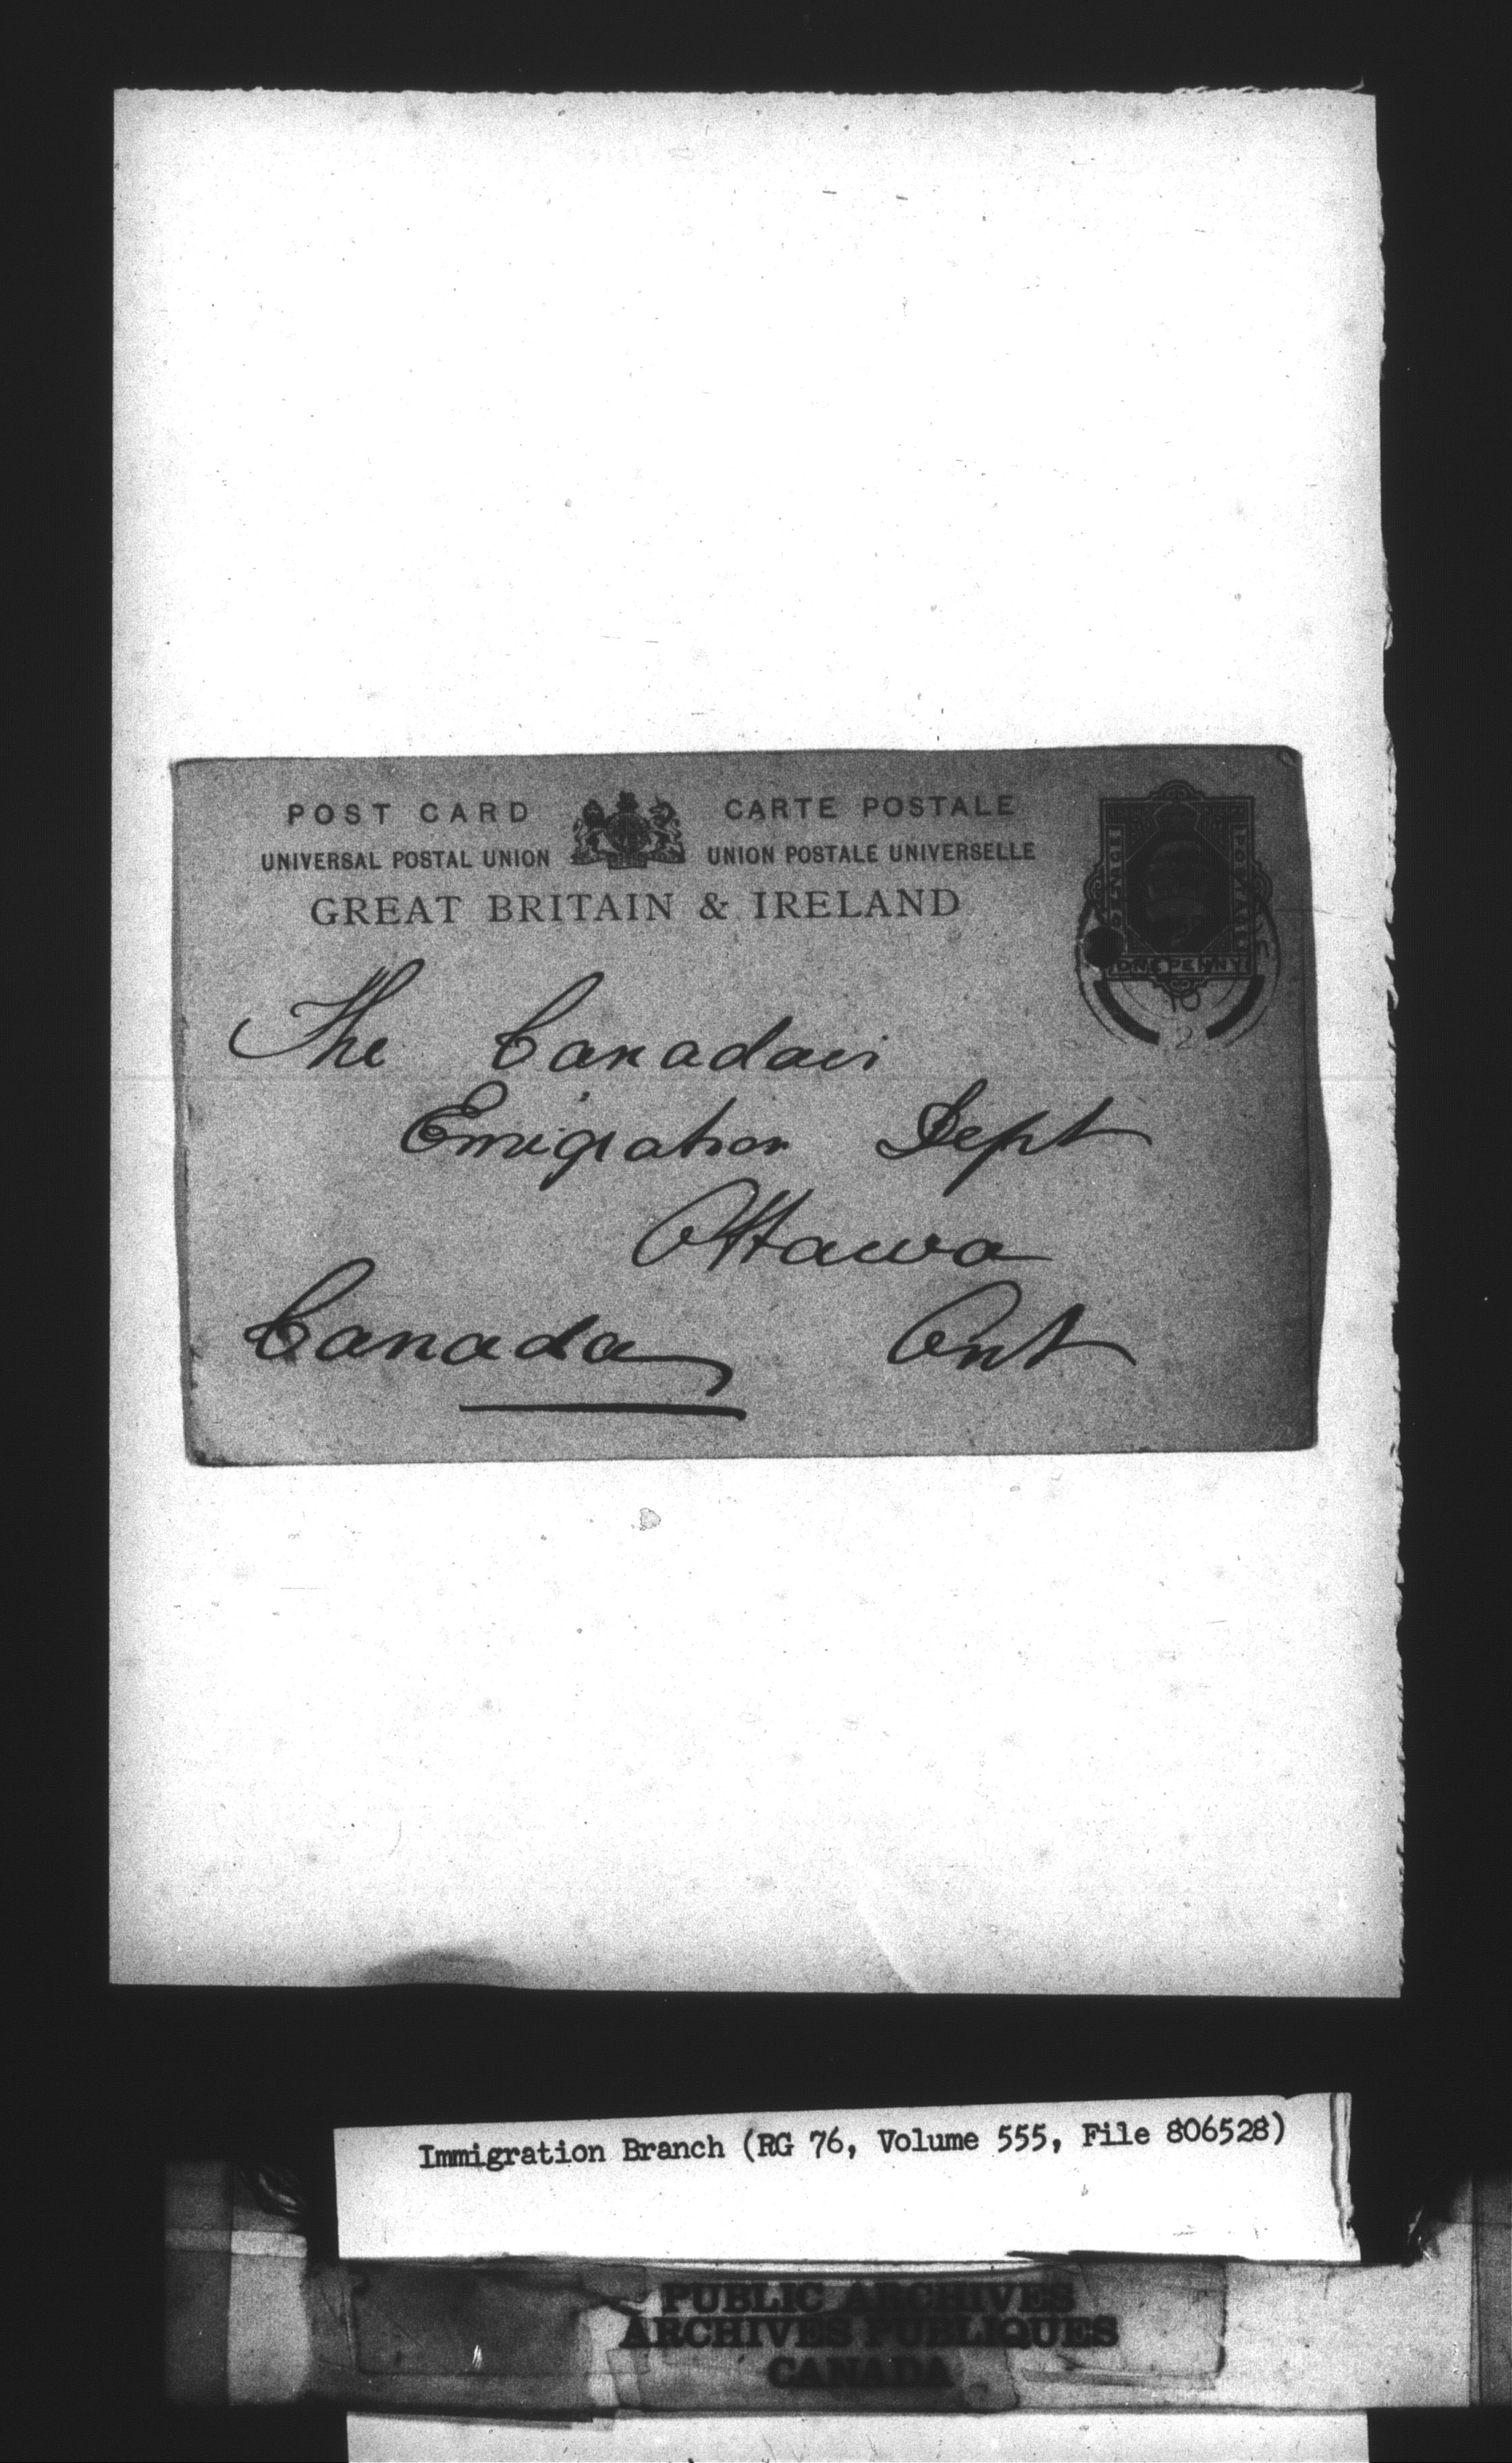 POST CARD CARTE POSTALE
UNIVERSAL POSTAL UNION UNION POSTALE UNIVERSELLE
GREAT BRITAIN & IRELAND
POSTAGE
ONE PENNY
10
2
The Canadain
Emigration Dept
Ottawa
Canada Ont
Immigration Branch (RG 76, Volume 555, File 806528)
PUBLIC ARCHIVES
ARCHIVES PUBLIQUES
CANADA